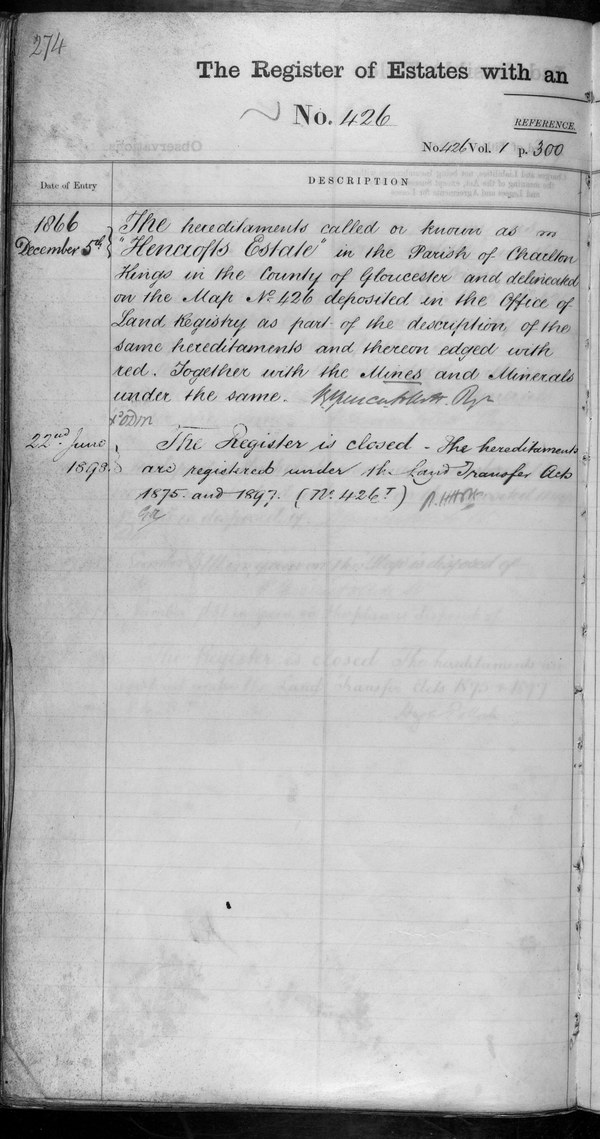 274
The Register of Estates with an
No. 426
REFERENCE.
No 426 Vol. 1 p. 300
Date of Entry
DESCRIPTION
1866
December 5th
The hereditaments called or known as
"Hencrofts Estate" in the Parish of Charlton
Kings in the County of Gloucester and delineated
on the Map No 426 deposited in the Office of
Land Registry as part of the description of the
same hereditaments and thereon edged with
red. Together with the Mines and Minerals
under the same.
22nd June
1898
The Register is closed - The hereditaments
are registered under the Land Transfer Acts
1875 and 1897. (No. 426T)